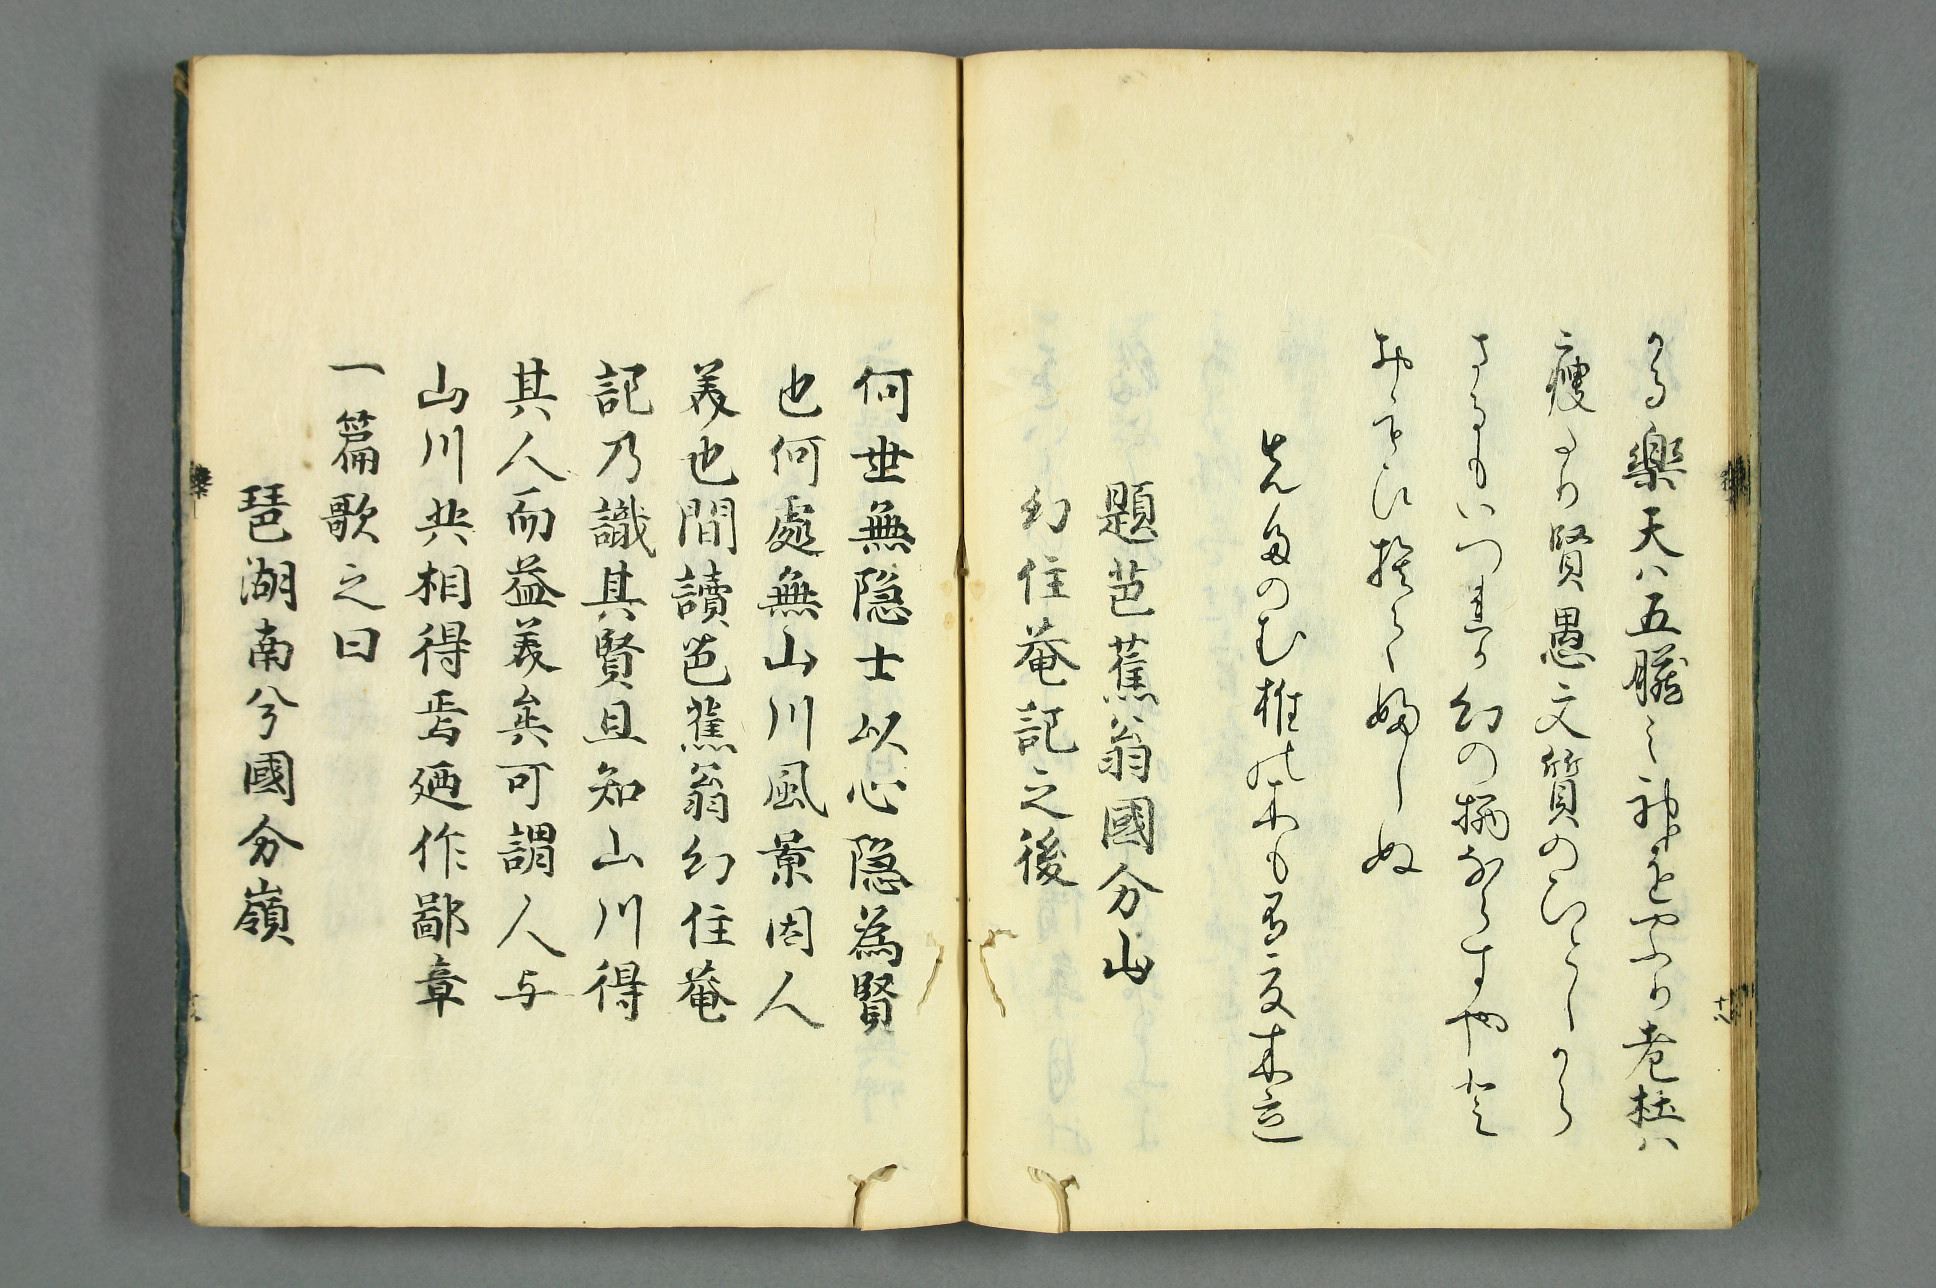 かる楽天ハ五臓之神をやふり老杜ハ
痩たり賢愚文質のひとしから
さるもいつれか幻の栖ならすやと
おもひ捨てふしぬ
先たのむ椎の木も有夏木立
題芭蕉翁國分山
幻住菴記之後
何世無隠士以心隠為賢
也何處無山川風景因人
美也間讀芭蕉翁幻住菴
記乃識其賢且知山川得
其人而益美矣可謂人与
山川共相得焉廼作鄙章
一篇歌之曰
琵湖南兮國分嶺
十八